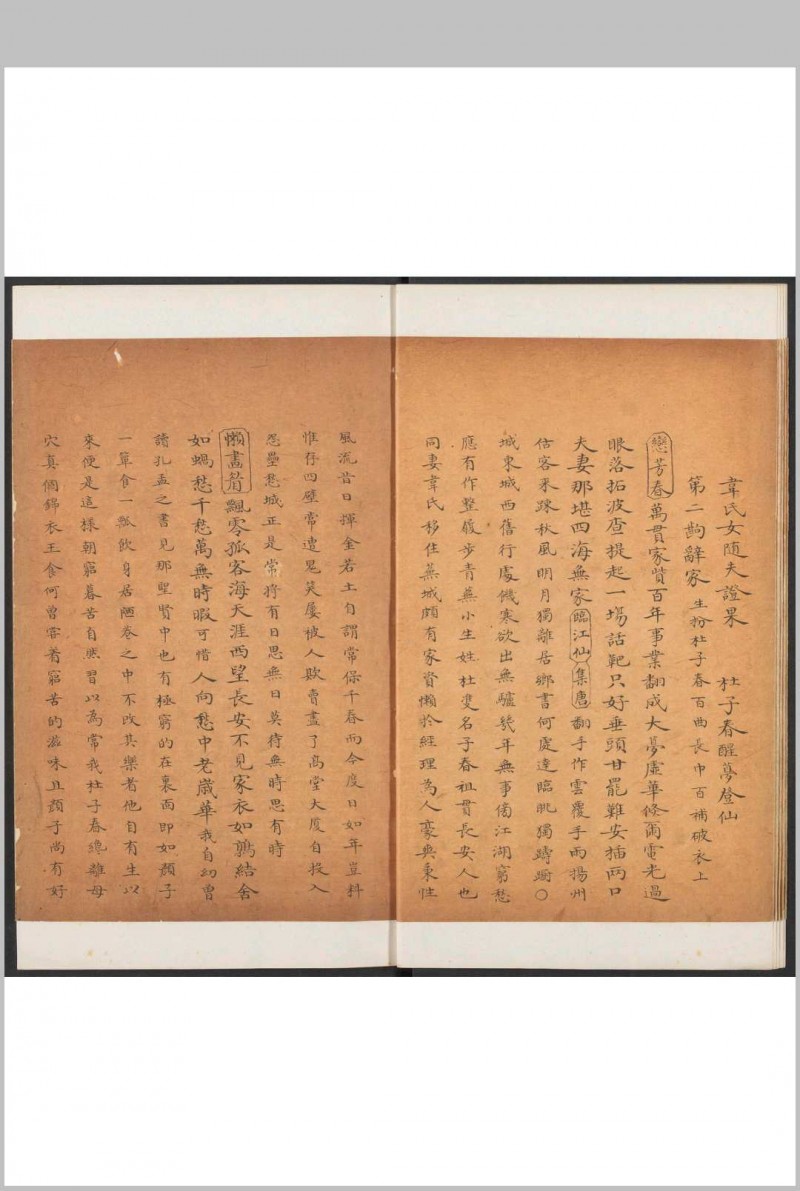 韋氏女隨夫證果　杜子春醒夢登仙
第二齣辭家 生扮杜子春百曲長巾百補破衣上
戀芳春 萬貫家貲百年事業翻成大夢虛華倏爾電光過
眼落拓波查提起一場話靶只好垂頭甘罷難安插兩口
夫妻那堪四海無家 臨江仙 集唐 翻手作雲覆手雨揚州
估客來踈秋風明月獨離居鄉書何處達臨眺獨躊躕○
城東城西舊行處饑寒欲出無驢幾年無事傍江湖窮愁
應有作整履步青蕪小生姓杜雙名子春祖貫長安人也
同妻韋氏移住蕪城頗有家資懶於經理為人豪爽秉性
風流昔日揮金若土自謂常保千春而今度日如年豈料
惟存四壁常遭鬼笑屢被人欺賣盡了高堂大廈自投入
忍壘愁城正是常將有日思無日莫待無時思有時
懶畫眉 飄零孤客海天涯西望長安不見家衣如鶉結舍
如蝸愁千愁萬無時暇可惜人向愁中老歲華 我自幼曾
讀孔孟之書見那聖賢中也有極窮的在裏面即如顏子
一簞食一瓢飲身居陋巷之中不改其樂者他自有生以
來便是這樣朝窮暮苦自然習以為常我杜子春纔離母
穴真個錦衣玉食何曾害著窮苦的滋味且顏子尚有好